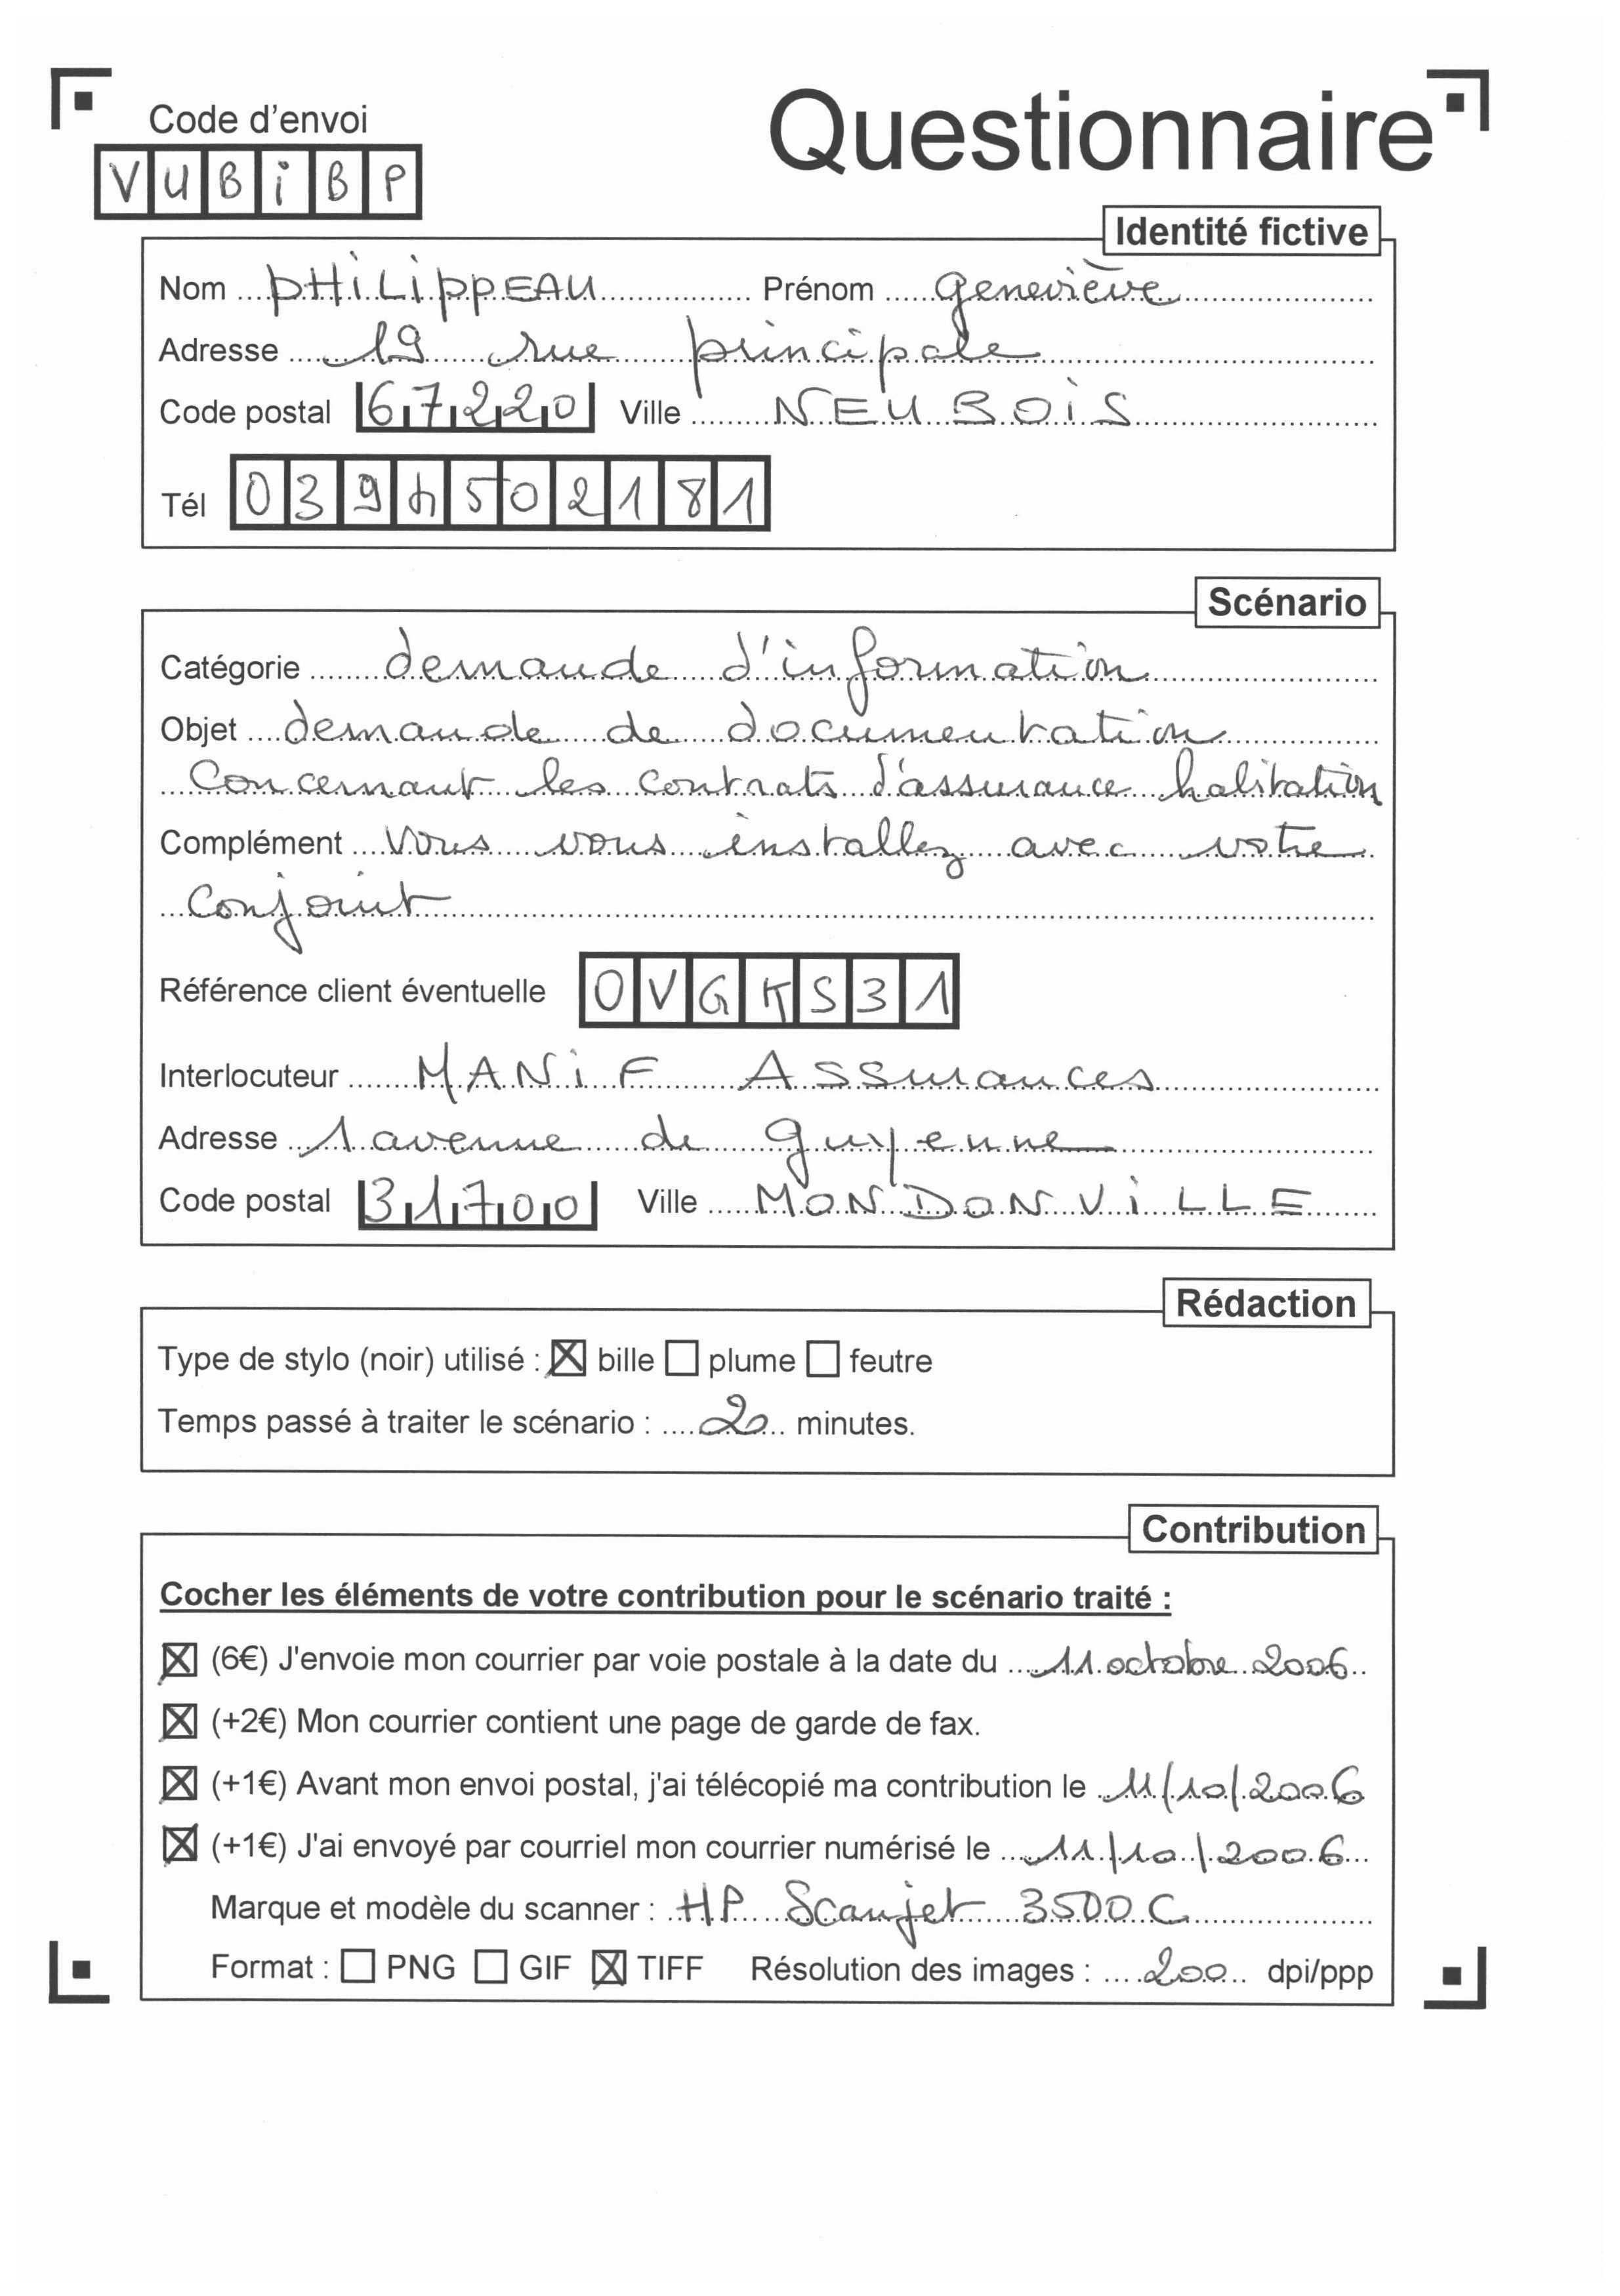 Code d'envoi
Questionnaire
VUBiBP
Identité fictive
Nom PHiLippEAU Prénom geneviève
Adresse 19 rue principale
Code postal 67220 Ville NEUBOiS
Tél 0394502181
Scénario
Catégorie demande d'information
Objet demande de documentation
Concernant les contrats d'assurance habitation
Complément Vous vous installez avec votre
Conjoint
Référence client éventuelle OVGKS31
Interlocuteur MANiF Assurances
Adresse 1 avenue de guyenne
Code postal 31700 Ville MONDONViLLE
Rédaction
Type de stylo (noir) utilisé : ☒ bille ☐ plume ☐ feutre
Temps passé à traiter le scénario : 20 minutes.
Contribution
Cocher les éléments de votre contribution pour le scénario traité :
☒ (6€) J'envoie mon courrier par voie postale à la date du 11 octobre 2006
☒ (+2€) Mon courrier contient une page de garde de fax.
☒ (+1€) Avant mon envoi postal, j'ai télécopié ma contribution le 11/10/2006
☒ (+1€) J'ai envoyé par courriel mon courrier numérisé le 11/10/2006
Marque et modèle du scanner : HP Scanjet 3500C
Format : ☐ PNG ☐ GIF ☒ TIFF Résolution des images : 200 dpi/ppp